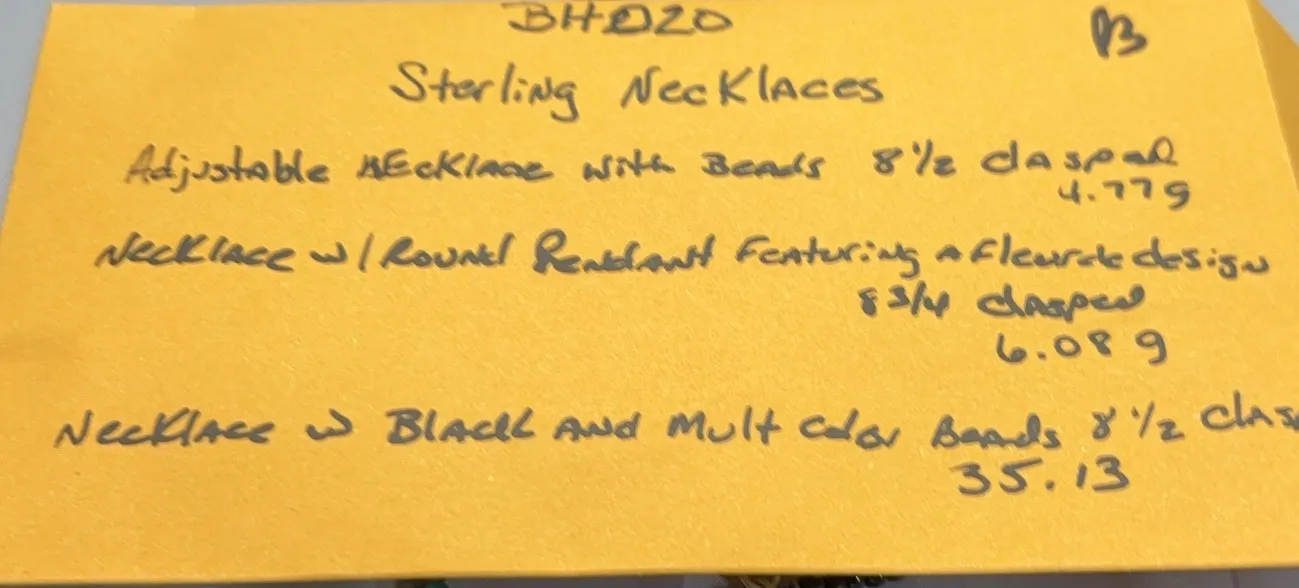 BH020
B
Sterling Necklaces
Adjustable Necklace with Beads 8 1/2 clasped
4.77g
Necklace w/ Round Pendant Featuring a fleur de design
8 3/4 clasped
6.08 g
Necklace w Black and Mult Color Beads 8 1/2 clas
35.13